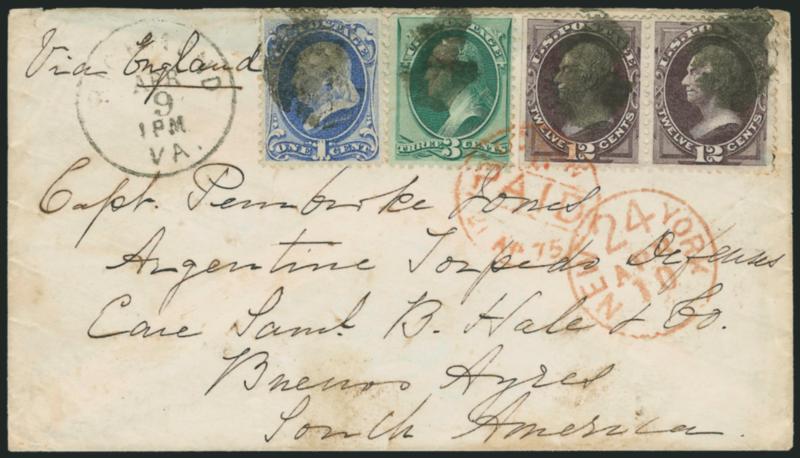 Via England
APR
9
1 PM
VA.
U.S. POSTAGE
ONE 1 CENT
THREE 3 CENTS
U.S. POSTAGE
TWELVE 12 CENTS
U.S. POSTAGE
TWELVE 12 CENTS
PAID
AP 75
NEW YORK
24
APR
10
Capt. Pembroke Jones
Argentine Torpedo Defenses
Care Saml. B. Hale & Co.
Buenos Ayres
South America.